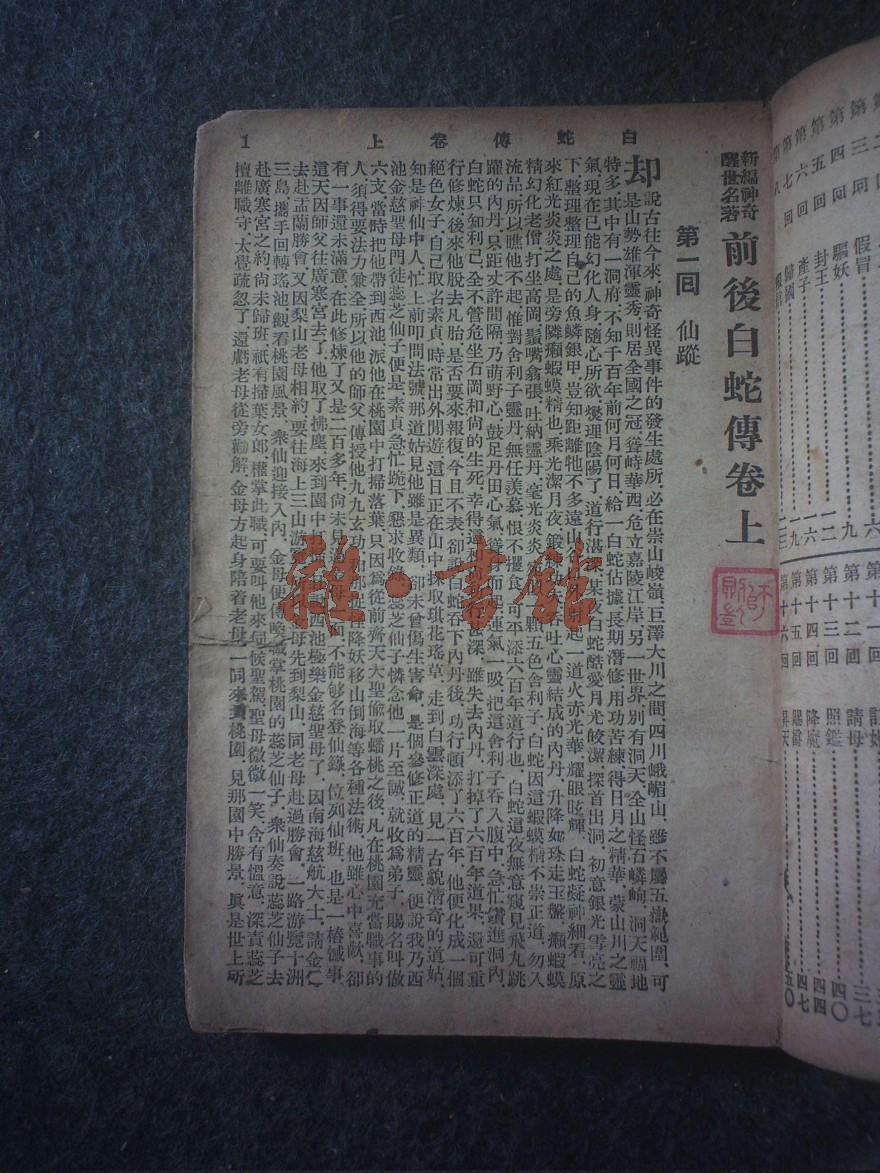 第
第
第四回
第五回
第六回
第七回
八
假冒
驅妖
封王
產子
歸國
九
二
六
一二
一三
第十一回
第十二回
第十三回
第十四回
第十五回
第十六回
請母
照鑑
降魔
賜緋
昇天
三七
四〇
四四
四七
五〇
新編神奇
醒世名著
前後白蛇傳卷上
第一回 仙蹤
白蛇傳卷上
1
却說古往今來，神奇怪異事件的發生處所，必在崇山峻嶺，巨澤大川之間，四川峨嵋山，雖不屬五嶽範圍，可
是山勢雄渾靈秀，則居全國之冠，聳峙華西，危立嘉陵江岸，另一世界，別有洞天，全山怪石嶙峋，洞天福地
特多，其中有一洞府，不知千百年前何月何日，給一白蛇佔據，長期潛修，用功苦練，得日月之精華，蒙山川之靈
氣，現在已能幻化人身，隨心所欲，爕理陰陽了，道行湛 某 白蛇酷愛月光皎潔，探首出洞，初意銀光雪亮之
下，整理整理自己的魚鱗銀甲，豈知距離牠不多遠山谷 起一道火赤光華，耀眼眩輝，白蛇凝神細看，原
來紅光炎炎之處，是旁隣癩蝦蟆精也，乘光潔月夜，鍛 吞吐心靈結成的內丹，升降如珠走玉盤，癩蝦蟆
精幻化老僧，打坐高岡，鬚嘴翕張，吐納靈丹，毫光炎炎， 顆五色舍利子，白蛇因這蝦蟆精不崇正道，勿入
流品，所以瞧他不起，惟對舍利子靈丹，無任羨慕，恨不攫食，可平添六百年道行也，白蛇這夜無意窺見飛丸跳
躍的內丹，只距丈許間隔，乃萌野心，鼓足丹田心氣， 而 運氣一吸，把這舍利子吞入腹中，急忙鑽進洞內，
白蛇只知利己，全不管危坐石岡和尚的生死，幸得這和 深，雖失去內丹，打掉了六百年道果，還可重
行修煉，後來他脫去凡胎，是否要來報復，今且不表，却說白蛇吞下內丹後，功行頓添了六百年，他便化成一個
絕色女子，自己取名素貞，時常出外閒遊，這日正在山中採取琪花瑤草，走到白雲深處，見一古貌清奇的道姑，
知是神仙中人，忙上前叩問法號，那道姑見他雖是異類，却未曾傷生害命，是個參修正道的精靈，便說我乃西
池金慈聖母門徒蕊芝仙子便是，素貞急忙跪下，懇求收錄，蕊芝仙子憐念他一片至誠，就收爲弟子，賜名叫做
六支，當時把他帶到西池，派他在桃園中打掃落葉，只因爲從前齊天大聖偷取蟠桃之後，凡在桃園充當職事的
人，須得要法力兼全，所以他的師父傳授他九九玄功，和那 降妖移山倒海等各種法術，他雖心中喜歡，却
有一事還未滿意，在此修煉了又是二百多年，尚未見過 母一面，不能够名登仙錄，位列仙班，也是一樁憾事，
這天因師父往廣寒宮去了，他取了拂塵，來到園中 西池極樂金慈聖母了，因南海慈航大士，請金
去赴盂蘭勝會，又因梨山老母相約，要往海上三山游 母先到梨山，同老母赴過勝會，一路游覽十洲
三島，攜手回轉瑤池，觀看桃園風景，衆仙迎接入內，金母便傳喚 掌桃園的蕊芝仙子，衆仙奏說蕊芝仙子去
赴廣寒宮之約，尚未歸班，祇有掃葉女郎，權掌此職，可要叫他來伺候聖駕，聖母微微一笑，含有慍意，深責蕊芝
擅離職守，太覺疏忽了，還虧老母從旁勸解，金母方起身陪着老母，一同來到桃園，見那園中勝景，眞是世上所
雜·書館